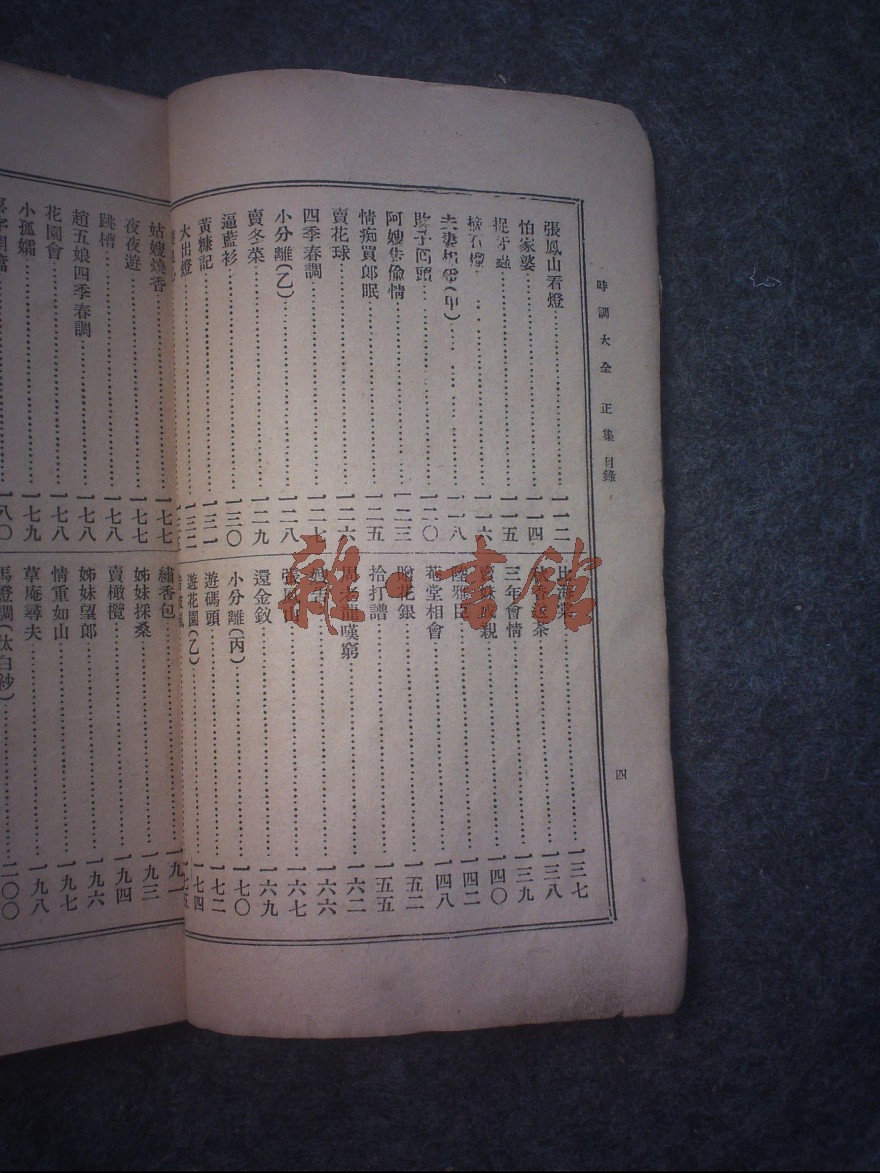 時調大全 正集 目錄
四
張鳳山看燈⋯⋯一一二
怕家婆⋯⋯一一四
捉牙蟲⋯⋯一一五
一一六
夫妻相罵(甲)⋯⋯一一八
敗子回頭⋯⋯一二〇
阿嫂告偷情⋯⋯一二三
情痴買郎眠⋯⋯一二五
賣花球⋯⋯一二六
四季春調⋯⋯一二七
小分離(乙)⋯⋯一二八
賣冬菜⋯⋯一二九
逼藍衫⋯⋯一三〇
黃糠記⋯⋯一三一
大出燈⋯⋯一三二
一三七
茶⋯⋯一三八
三年會情⋯⋯一三九
親⋯⋯一四〇
陸雅臣⋯⋯一四二
菴堂相會⋯⋯一四八
贈花銀⋯⋯一五二
拾打譜⋯⋯一五五
嘆窮⋯⋯一六二
一六六
張鳳山⋯⋯一六七
還金釵⋯⋯一六九
小分離(丙)⋯⋯一七〇
遊碼頭⋯⋯一七二
遊花園(乙)⋯⋯一七四
一七五
姑嫂燒香⋯⋯一七七
夜夜遊⋯⋯一七七
跳槽⋯⋯一七八
趙五娘四季春調⋯⋯一七八
花園會⋯⋯一七八
小孤孀⋯⋯一七九
一八〇
繡香包⋯⋯一九一
姊妹採桑⋯⋯一九三
賣橄欖⋯⋯一九四
姊妹望郎⋯⋯一九六
情重如山⋯⋯一九七
草庵尋夫⋯⋯一九八
馬燈調⋯⋯二〇〇
雜·書館